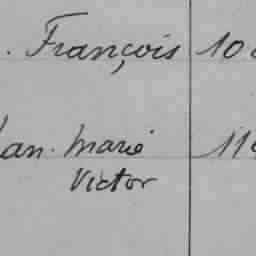 . François 10
Jean. Marie 11
Victor